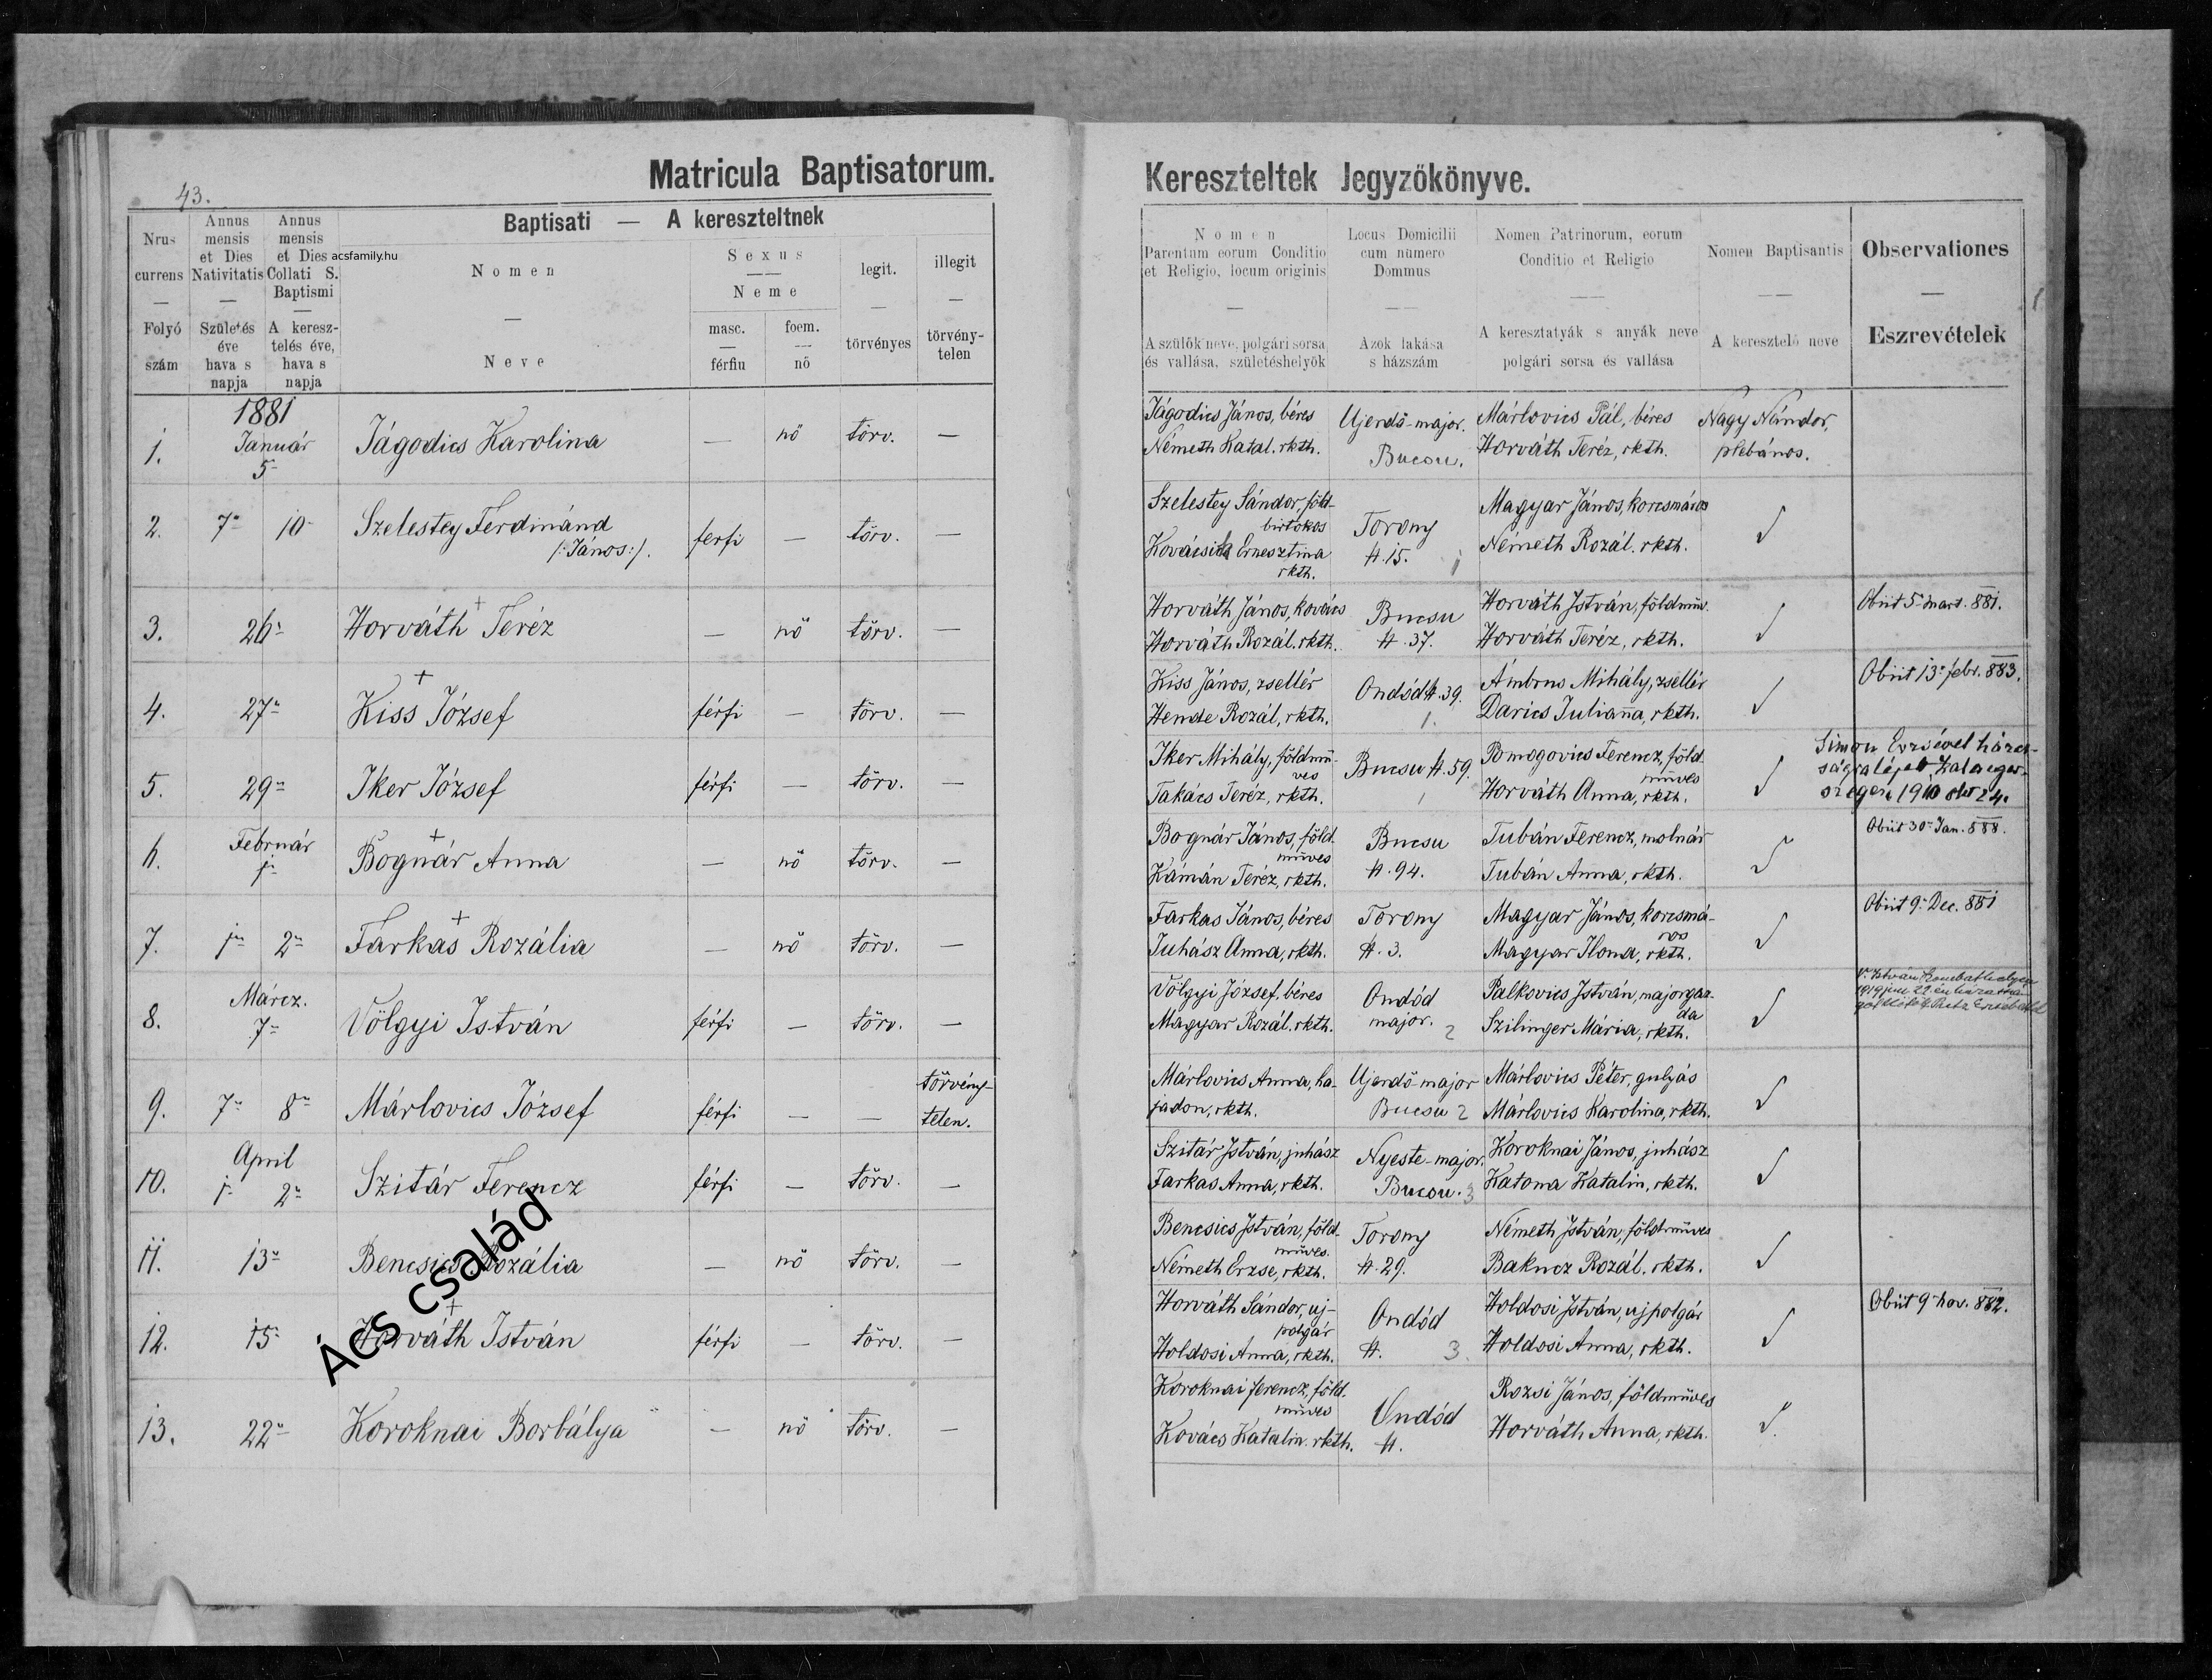 43.
Matricula Baptisatorum.
Nrus currens — Folyó szám
Annus mensis et Dies Nativitatis — Születés éve hava s napja
Annus mensis et Dies Collati S. Baptismi — A keresztelés éve, hava s napja
acsfamily.hu
Baptisati — A kereszteltnek
Nomen — Neve
Sexus — Neme
masc. — férfiu
foem. — nő
legit. — törvényes
illegit — törvénytelen
1881
1. Január 5 Jágodics Karolina — nő törv. —
2. 7 10 Szelestey Ferdinánd férfi — törv. —
/:János:/.
3. 26 Horváth Teréz + — nő törv. —
4. 27 Kiss József + férfi — törv. —
5. 29 Iker József férfi — törv. —
6. Február 1 Bognár Anna + — nő törv. —
7. 1 2 Farkas Rozália + — nő törv. —
8. Márcz. 7 Völgyi István férfi — törv. —
9. 7 8 Márlovics József férfi — — törvény-
telen.
10. April 1 2 Szitár Ferencz férfi — törv. —
11. 13 Bencsics Rozália — nő törv. —
12. 15 Horváth István + férfi — törv. —
13. 22 Koroknai Borbálya — nő törv. —
Ács család
Kereszteltek Jegyzőkönyve.
Nomen Parentum eorum Conditio et Religio, locum originis — A szülők neve, polgári sorsa és vallása, születéshelyök
Locus Domicilii cum numero Dommus — Azok lakása s házszám
Nomen Patrinorum, eorum Conditio et Religio — A keresztatyák s anyák neve polgári sorsa és vallása
Nomen Baptisantis — A keresztelő neve
Observationes — Eszrevételek
Jágodics János, béres Ujerdő-major. Márlovics Pál, béres Nagy Nándor,
Németh Katal. rkth. Bucsu. Horváth Teréz, rkth. plebános.
Szelestey Sándor, föld- Torony Magyar János, korcsmáros
birtokos
Kovácsits Ernesztina H. 15. Németh Rozál. rkth.
rkth.
Horváth János, kovács Bucsu Horváth István, földmüv. Obiit 5 mart. 881.
Horváth Rozál. rkth. H. 37. Horváth Teréz, rkth.
Kiss János, zsellér Ondód H. 39. Ambrus Mihály, zsellér Obiit 13 febr. 883.
Hende Rozál, rkth. 1. Darics Julianna, rkth.
Iker Mihály, földmü- Bucsu H. 59. Pomogovics Ferencz, föld- Simon Erzsével házas-
ves müves ságra lépett Zalaeger-
Takács Teréz, rkth. Horváth Anna, rkth. szegen 1910 okt 24.
Bognár János, föld- Bucsu Tubán Ferencz, molnár Obiit 30 Jan. 888.
müves
Kámán Teréz, rkth. H. 94. Tubán Anna, rkth.
Farkas János, béres Torony Magyar János, korcsmá- Obiit 9 Dec. 881
ros
Juhász Anna, rkth. H. 3. Magyar Ilona, rkth.
Völgyi József, béres Ondód Palkovics István, majorgaz- V. István Szombathelyen
da 1919 juni 22-én
Magyar Rozál. rkth. major. 2 Szilinger Mária, rkth.
Márlovics Anna, ha- Ujerdő-major Márlovics Péter, gulyás
jadon, rkth. Bucsu 2 Márlovics Karolina, rkth.
Szitár István, juhász Nyeste-major. Koroknai János, juhász
Farkas Anna, rkth. Bucsu. 3 Katona Katalin, rkth.
Bencsics István, föld- Torony Németh István, földmüves
müves.
Németh Erzse, rkth. H. 29. Bakucz Rozál. rkth.
Horváth Sándor, uj- Ondód Holdosi István, ujpolgár Obiit 9 nov. 882.
polgár
Holdosi Anna, rkth. H. 3. Holdosi Anna, rkth.
Koroknai Ferencz, föld- Ondód Rozsi János, földmüves
müves
Kovács Katalin. rkth. H. Horváth Anna, rkth.